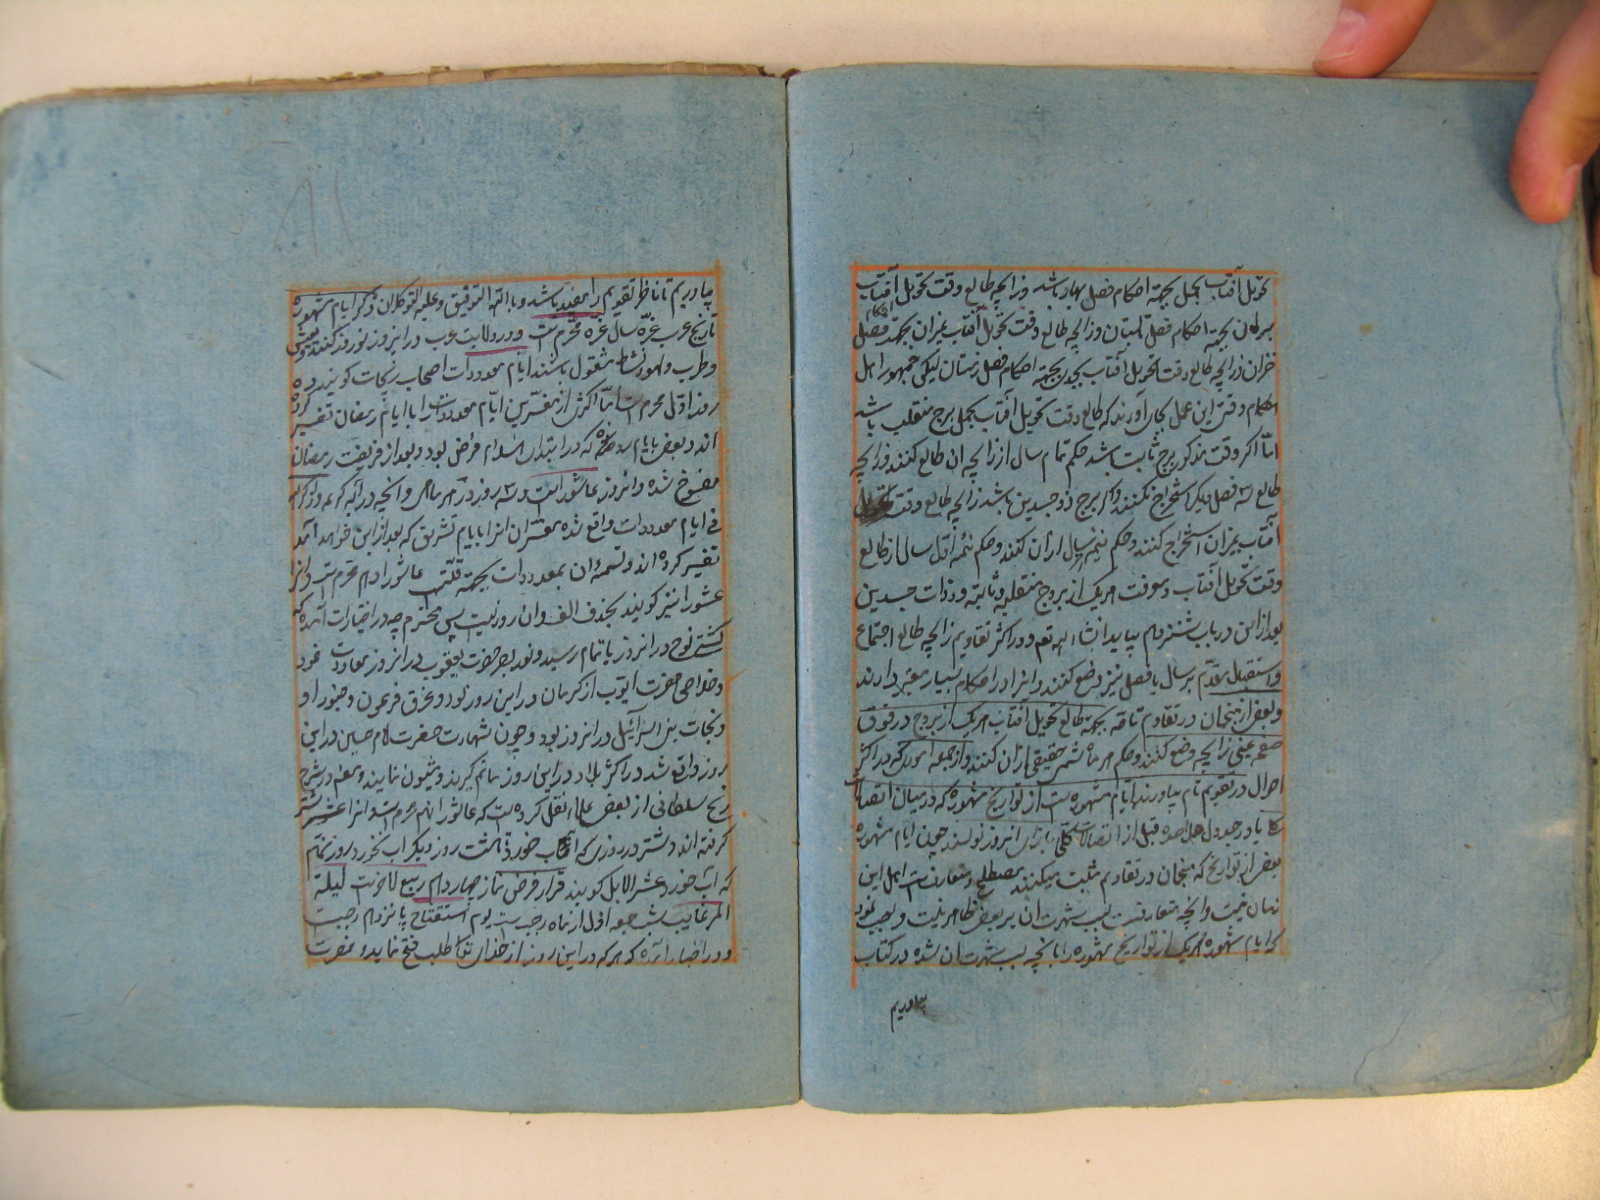 تحویل آفتاب بحمل بجهة احکام فصل بهار باشد و زایچه طالع وقت تحویل آفتاب
بسرطان بجهة احکام فصل تابستان و زایچه طالع وقت تحویل آفتاب بمیزان بجهة احکام فصل
خزان و زایچه طالع وقت تحویل آفتاب بجدی بجهة احکام فصل زمستان لیکن جمهور اهل
احکام وقتی این عمل بکار آورند که طالع وقت تحویل آفتاب بحمل برج منقلب باشد
امّا اکر وقت مذکور برج ثابت باشد حکم تمام سال از زایچه ان طالع کنند و زایچه
طالع سه فصل دیکر استخراج نکنند و اکر برج ذو جسدین باشد زایچه طالع وقت تحویل
آفتاب بمیزان استخراج کنند و حکم نیمه سال از ان کنند و حکم نیمه اوّل سال از طالع
وقت تحویل آفتاب و معرفت هر یک از بروج منقلبه و ثابته و ذوات جسدین
بعد از این در باب ششم بیاید انشاء الله تعم و در اکثر تقاویم زایچه طالع اجتماع
و استقبال مقدّم بر سال یا فصل نیز وضع کنند و انرا در احکام بسیار معتبر دارند
و بعضی از منجمان در تقاویم تامّه بجهة طالع تحویل آفتاب بهر یک از بروج در فوق
صفحه یمنی زایچه وضع کنند و حکم هر ماه شمسی حقیقی از ان کنند و از جمله اموری که در اکثر
احوال در تقویم تام بیاورند ایام مشهوره است از تواریخ مشهوره که در میان اتصالات
یا در جدول علاحده قبل از اتصالات کلّی بازای انروز نویسند چون ایام مشهوره
بعضی از تواریخ که منجمان در تقاویم مثبت میکنند مصطلح و متعارف اهل این
زمان نیست و انچه متعارفست سبب شهرت ان بر بعضی ظاهر نیست واجب نمود
که ایام مشهوره هر یک از تواریخ مشهوره را بانچه سبب شهرت ان شده در کتاب
بیاوریم
بیاوریم تا ناظر تقویم را مفید باشد و بالله التوفیق و علیه التوکلان ذکر ایام مشهوره
تاریخ عرب غرّه سال غرّه محرّم است و در ولایت عرب در انروز نوروز کنند و بعیش
و طرب و لهو و نشاط مشغول باشند ایام معدودات اصحاب زیجات کویند ده
روز اوّل محرم است امّا اکثری از مفسّرین ایّام معدودات را بایام رمضان تفسیر کرده
اند و بعضی بایام که در ابتدای اسلام فرض بود و بعد از فرضیّت رمضان
منسوخ شده و انروز عاشورا است و سه روز در هر ماهی و انچه در آیه کریمه و اذکروا الله
فی ایام معدودات واقع شده مفسّران انرا بایام تشریق که بعد از این خواهد آمد
تفسیر کرده اند و تسمیه ان بمعدودات بجهة قلّتست عاشورا دهم محرم است و انرا
عشورا نیز کویند بحذف الف و ان روزیست بسی محترم چه در اخبارات آمده که
کشتی نوح در انروز باتمام رسید و نور بصر حضرت یعقوب در انروز معاودت نمود
و خلاصی حضرت ایوب از کرمان در این روز بود و غرق فرعون و جنود او
و نجات بنی اسرائیل در انروز بود و چون شهادت حضرت امام حسین در این
روز واقع شد در اکثر بلاد در این روز ماتم کیرند و شیون نمایند و در شرح
زیج سلطانی از بعض علما نقل کرده است که عاشورا نهم محرم است و انرا از عشر شتر
کرفته اند و شتر در روزی که آب خورد تا هشت روز دیکر آب نخورد و روز نهم
که آب خورد عشر الابل کویند قرار فرض نماز چهاردهم ربیع الاخر است لیلة
الرغایب شب جمعه اول از ماه رجب است یوم استفتاح پانزدهم رجب است
و در اخبار آمده که هر که در این روز از خدای تعالی طلب فتح نماید و نصرت